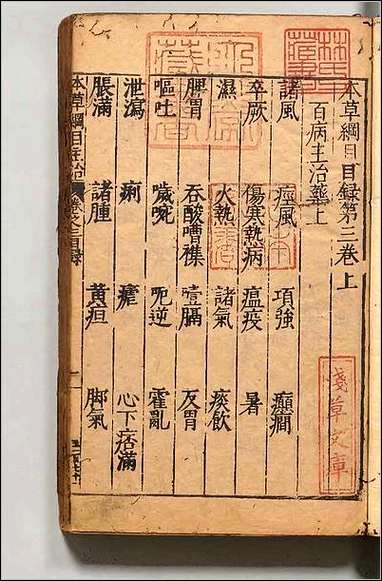 本草綱目目録第三卷上
百病主治藥上
諸風 痙風 項強 癲癇
卒厥 傷寒熱病 瘟疫 暑
濕 火熱 諸氣 痰飲
脾胃 吞酸嘈雜 噎膈 反胃
嘔吐 噦啘 呃逆 霍亂
泄瀉 痢 瘧 心下痞滿
脹滿 諸腫 黃疸 脚氣
本草綱目主治
淺草文庫